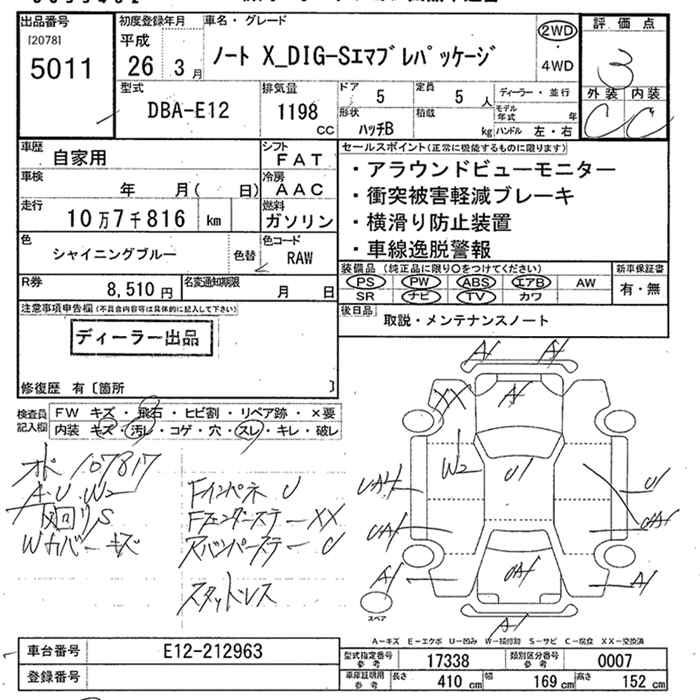 出品番号
[2078]
5011
初度登録年月
平成
26 3月
車名・グレード
ノート X_DIG-Sエマブレパッケージ
2WD
・
4WD
評価点
3
外装 内装
C C
型式
DBA-E12
排気量
1198
CC
ドア
5
定員
5 人
形状
ハッチB
積載
kg
ディーラー・並行
モデル年式 年
ハンドル 左・右
車歴
自家用
シフト
FAT
車検
年 月( 日)
冷房
AAC
走行
10万7千816 km
燃料
ガソリン
色
シャイニングブルー
色替
色コード
RAW
R券
8,510円
名変通知期限
月 日
セールスポイント(正常に機能するものに限ります)
・アラウンドビューモニター
・衝突被害軽減ブレーキ
・横滑り防止装置
・車線逸脱警報
装備品 (純正品に限り○をつけてください)
PS PW ABS エアB AW
SR ナビ TV カワ
新車保証書
有・無
後日品
取説・メンテナンスノート
注意事項申告欄(不具合内容等は具体的に記入して下さい)
ディーラー出品
修復歴 有〔箇所 〕
検査員記入欄
FW キズ・飛石・ヒビ割・リペア跡・×要
内装 キズ・汚レ・コゲ・穴・スレ・キレ・破レ
107817
A.U.W2
廻りS
Wカバーキズ
FインパネU
FフェンダーステーXX
スバンパーステーC
スタッドレス
A1 A1
A1
XX
W2
U1
UA1
UA1
U1
UA1
A1
UA1
A1
A1
スペア
A-キズ E-エクボ U-凹み W-補修跡 S-サビ C-腐食 XX-交換済
車台番号
E12-212963
登録番号
型式指定番号 参考
17338
類別区分番号 参考
0007
車庫証明用 参考
長さ 410 cm 幅 169 cm 高さ 152 cm